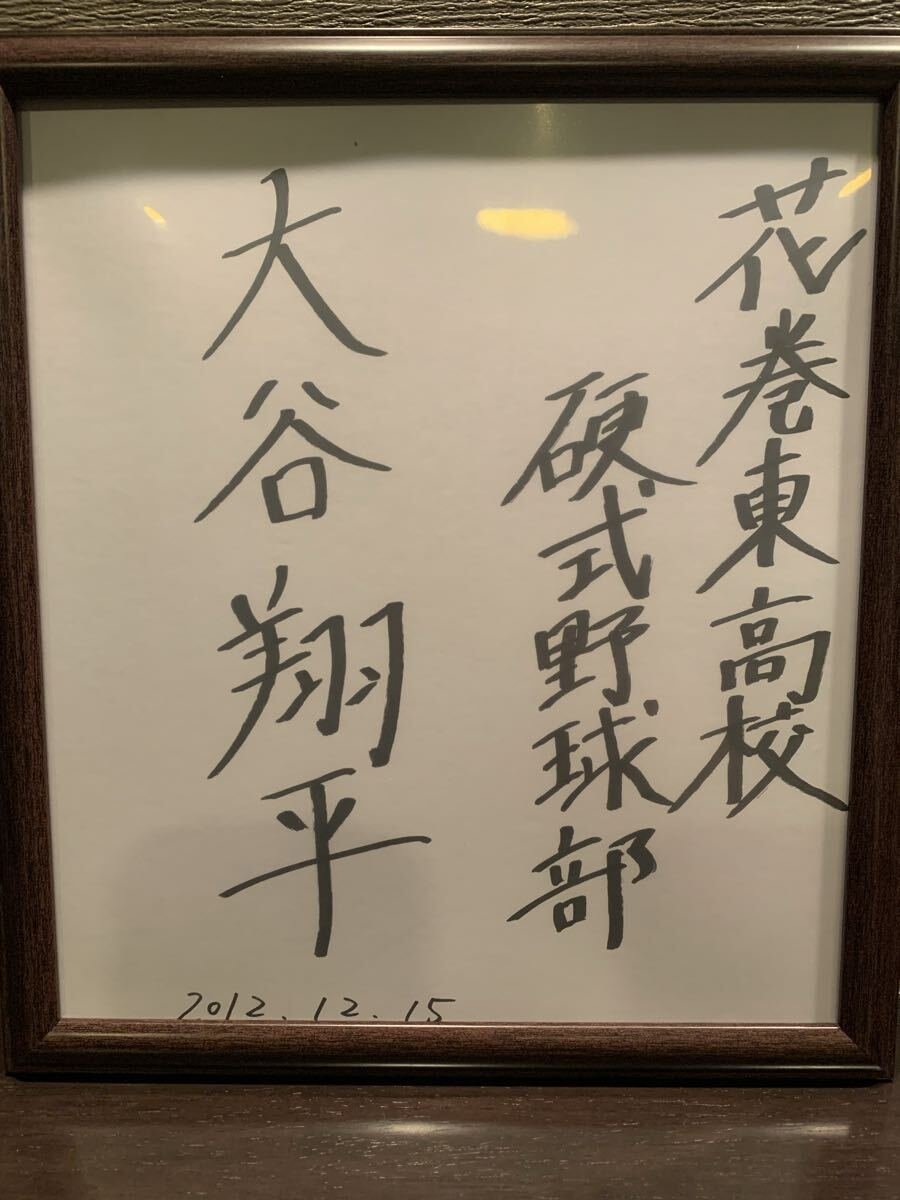 花巻東高校
硬式野球部
大谷翔平
2012.12.15